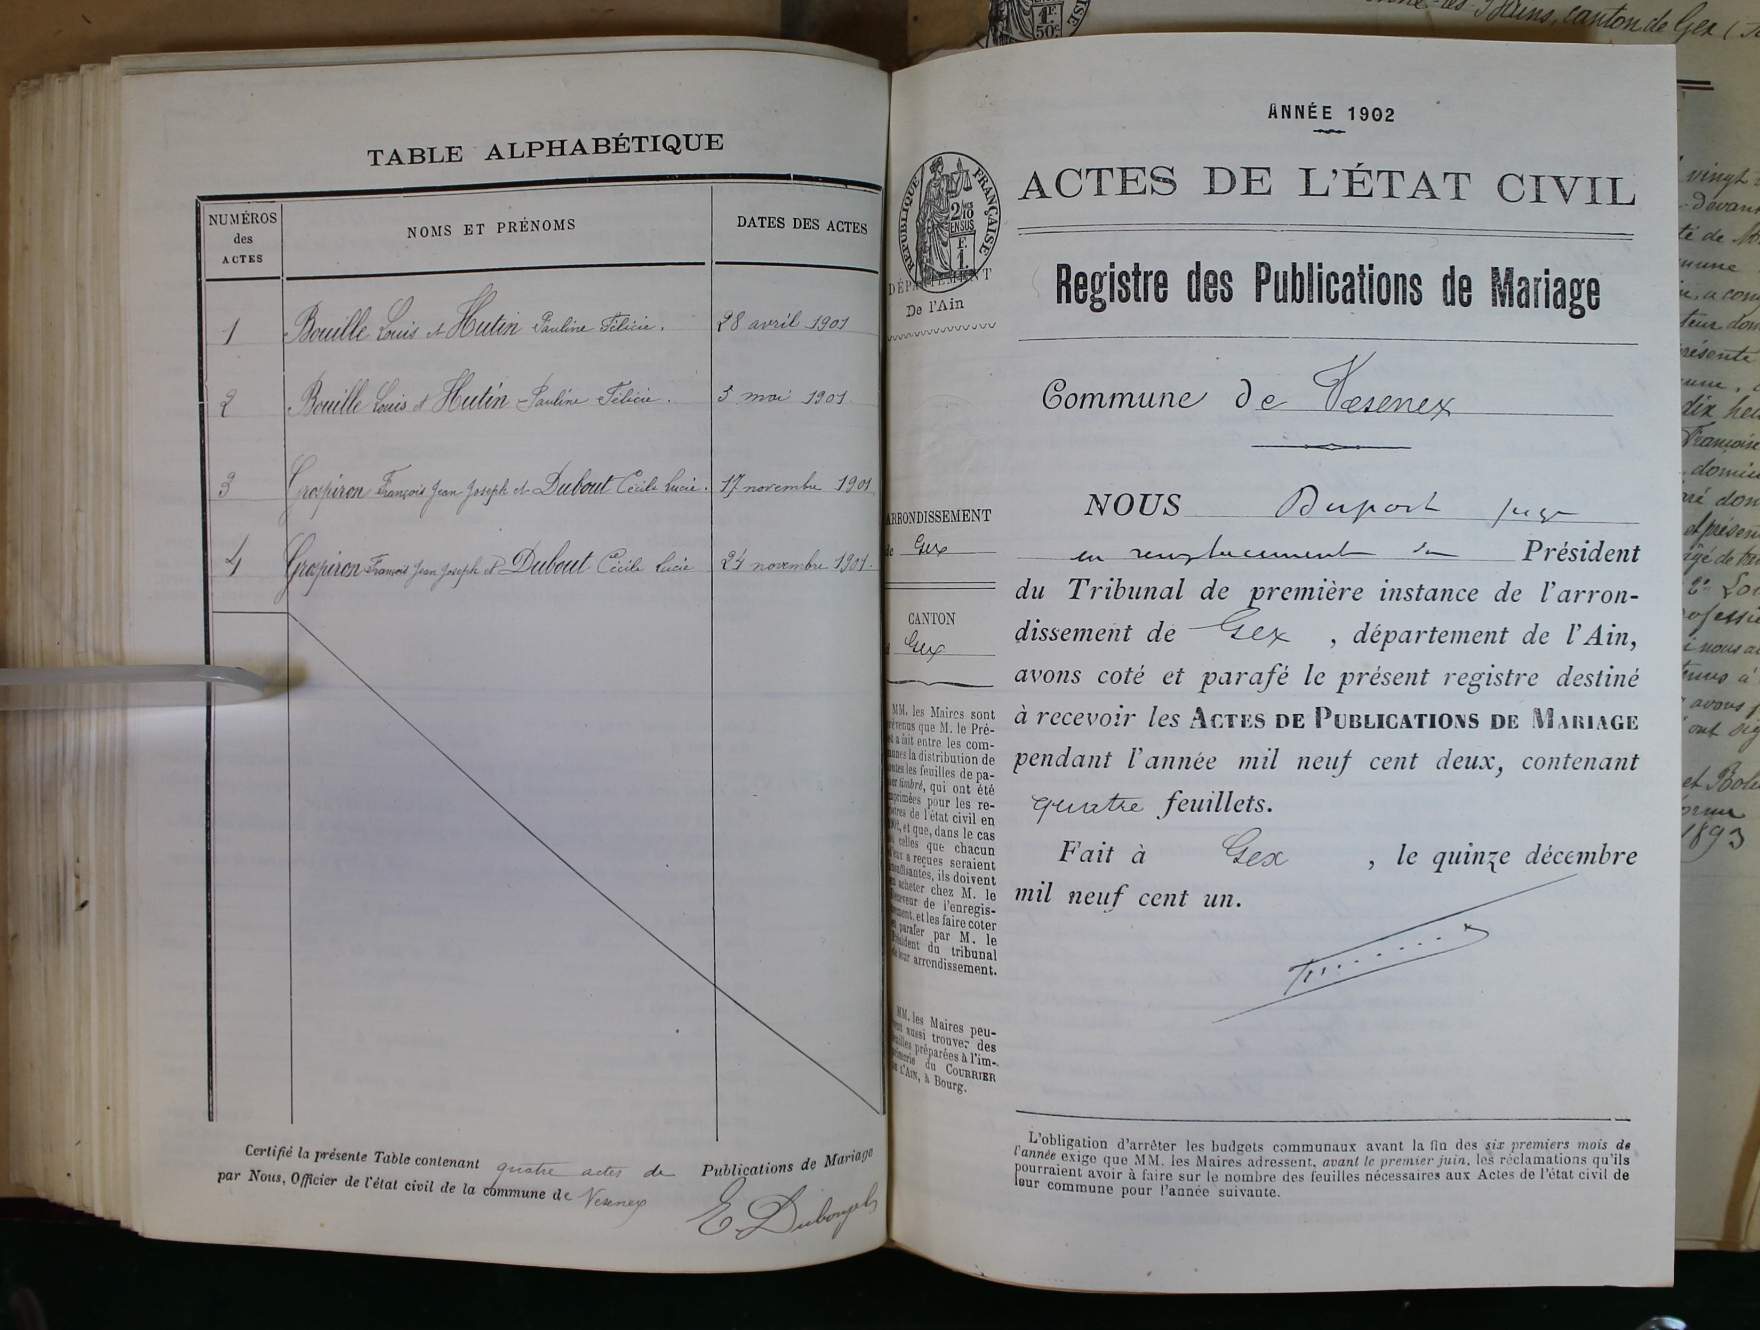 TABLE ALPHABÉTIQUE
NUMÉROS
des
ACTES
NOMS ET PRÉNOMS
DATES DES ACTES
1 Bouille Louis et Hutin Pauline Félicie. 28 avril 1901
2 Bouille Louis et Hutin Pauline Félicie. 5 mai 1901
3 Grospiron François Jean Joseph et Dubout Cécile Lucie. 17 novembre 1901
4 Grospiron François Jean Joseph et Dubout Cécile Lucie 24 novembre 1901.
Certifié la présente Table contenant quatre actes de Publications de Mariage
par Nous, Officier de l'état civil de la commune de Vesenex
ANNÉE 1902
ACTES DE L'ÉTAT CIVIL
RÉPUBLIQUE FRANÇAISE
2/10
EN SUS
F.
1.
DÉPARTEMENT
De l'Ain
Registre des Publications de Mariage
Commune de Vesenex
ARRONDISSEMENT
de Gex
CANTON
Gex
MM. les Maires sont
prévenus que M. le Pré-
fet a fait entre les com-
munes la distribution de
toutes les feuilles de pa-
pier timbré, qui ont été
imprimées pour les re-
gistres de l'état civil en
et que, dans le cas
celles que chacun
d'eux a reçues seraient
insuffisantes, ils doivent
en acheter chez M. le
Receveur de l'enregis-
trement, et les faire coter
et parafer par M. le
Président du tribunal
de leur arrondissement.
MM. les Maires peu-
vent aussi trouver des
feuilles préparées à l'im-
primerie du COURRIER
DE L'AIN, à Bourg.
NOUS Duport juge
en remplacement du Président
du Tribunal de première instance de l'arron-
dissement de Gex , département de l'Ain,
avons coté et parafé le présent registre destiné
à recevoir les ACTES DE PUBLICATIONS DE MARIAGE
pendant l'année mil neuf cent deux, contenant
quatre feuillets.
Fait à Gex , le quinze décembre
mil neuf cent un.
L'obligation d'arrêter les budgets communaux avant la fin des six premiers mois de
l'année exige que MM. les Maires adressent, avant le premier juin, les réclamations qu'ils
pourraient avoir à faire sur le nombre des feuilles nécessaires aux Actes de l'état civil de
leur commune pour l'année suivante.
1 F.
50c
canton de Gex
vingt
devant
dix heures
1893